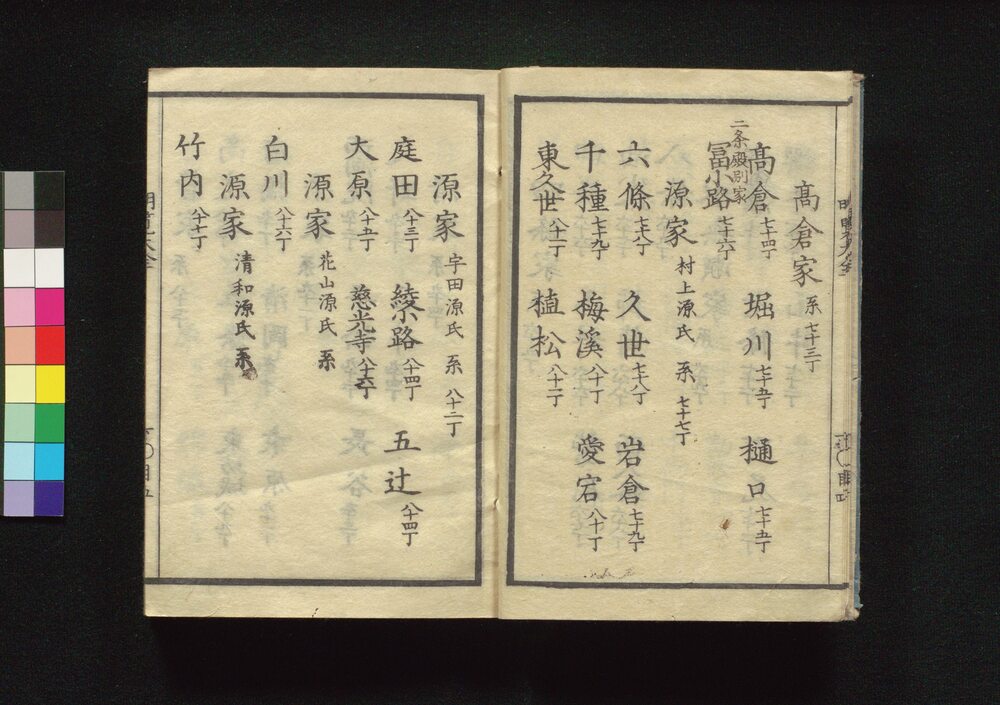 髙倉家 系 七十三丁
髙倉 七十四丁 堀川 七十五丁 樋口 七十五丁
二条殿別家
冨小路 七十六丁
源家 村上源氏 系 七十七丁
六條 七十八丁 久世 七十八丁 岩倉 七十九丁
千種 七十九丁 梅溪 八十丁 愛宕 八十丁
東久世 八十一丁 植松 八十一丁
源家 宇田源氏 系 八十二丁
庭田 八十三丁 綾小路 八十四丁 五辻 八十四丁
大原 八十五丁 慈光寺 八十六丁
源家 花山源氏 系
白川 八十六丁
源家 清和源氏 系
竹内 八十七丁